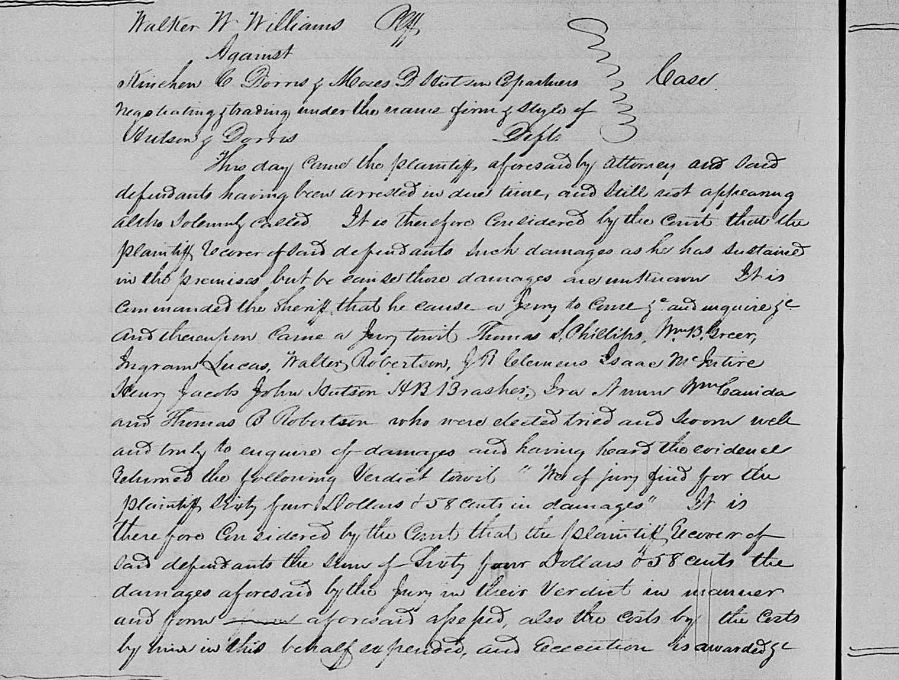 Walker W Williams Plff
Against
Kinchen C Dorris & Moses D Hutson Copartners Case
negotiating & trading under the name firm & style of
Hutson & Dorris Defts
This day came the plaintiff aforesaid by attorney and said
defendants having been arrested in due time, and still not appearing
altho Solemnly called It is therefore Considered by the Court that the
plaintiff recover of said defendants such damages as he has sustained
in the premises, but because those damages are unknown It is
commanded the Sheriff that he cause a Jury to come &c and enquire &c
and thereupon came a Jury towit Thomas S Phillips, Wm B. Greer,
Ingram Lucas, Walter Robertson, J R Clemens Isaac McIntire
Henry Jacobs John Hutson H B Brasher, Ira Nunn Wm Canida
and Thomas B Robertson who were elected tried and sworn well
and truly to enquire of damages and having heard the evidence
returned the following Verdict towit " We of jury find for the
plaintiff Sixty four Dollars & 58 cents in damages" It is
therefore Considered by the Court that the plaintiff Recover of
said defendants the sum of Sixty four Dollars & 58 cents the
damages aforesaid by the Jury in their Verdict in manner
and form aforesaid assessed, also the costs by the Costs
by him in this behalf expended, and Execution is awarded &c